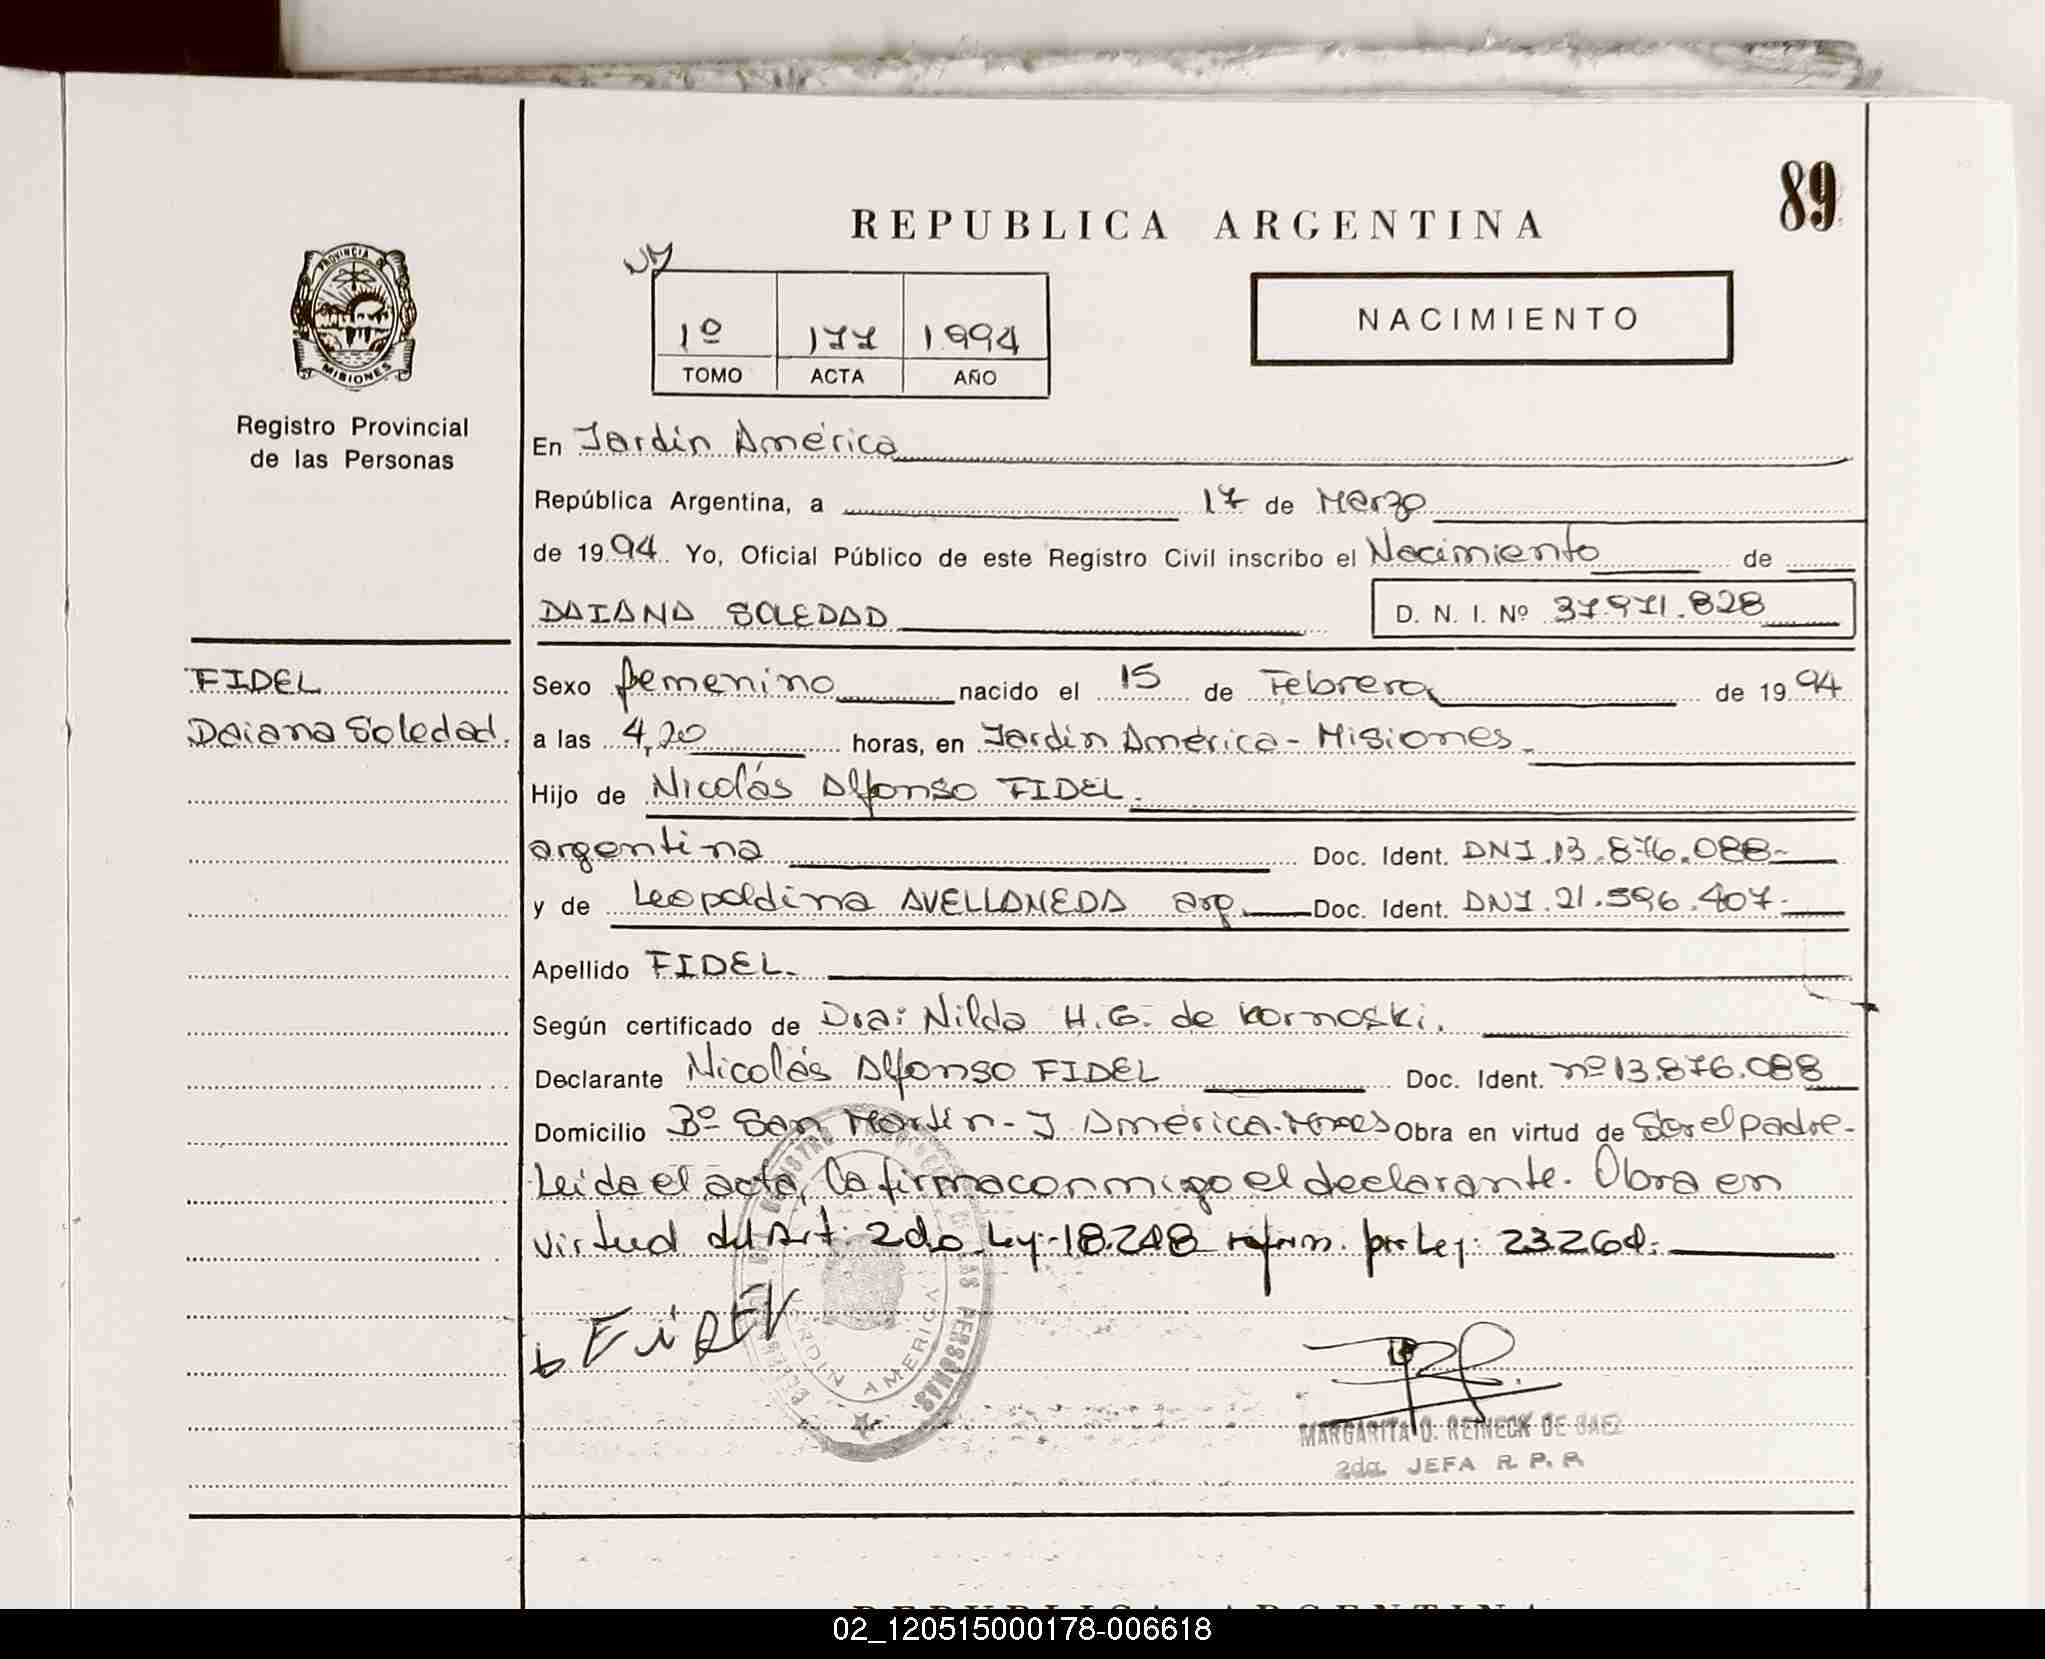 89
REPUBLICA ARGENTINA
NACIMIENTO
1º 177 1994
TOMO ACTA AÑO
PROVINCIA DE
MISIONES
Registro Provincial
de las Personas
En Jardín América
República Argentina, a 17 de Marzo
de 1994. Yo, Oficial Público de este Registro Civil inscribo el Nacimiento de
DAIANA SOLEDAD D. N. I. Nº 37.971.828
FIDEL
Daiana Soledad.
Sexo femenino nacido el 15 de Febrero de 1994
a las 4,20 horas, en Jardín América - Misiones.
Hijo de Nicolás Alfonso FIDEL.
argentina Doc. Ident. DNI.13.876.088-
y de Leopoldina AVELLANEDA arg. Doc. Ident. DNI.21.596.407-
Apellido FIDEL.
Según certificado de Dra: Nilda H.G. de Kornoski.
Declarante Nicolás Alfonso FIDEL Doc. Ident. nº13.876.088
Domicilio Bº San Martín - J América-Mnes Obra en virtud de Ser el padre-
Leída el acta, la firma conmigo el declarante. Obra en
virtud del Art: 2do. Ley-18.248 reform. por Ley: 23264.
FiDEL
JARDIN AMERICA
MARGARITA O. REINECK DE BAEZ
2da. JEFA R. P. P.
REPUBLICA ARGENTINA
02_120515000178-006618